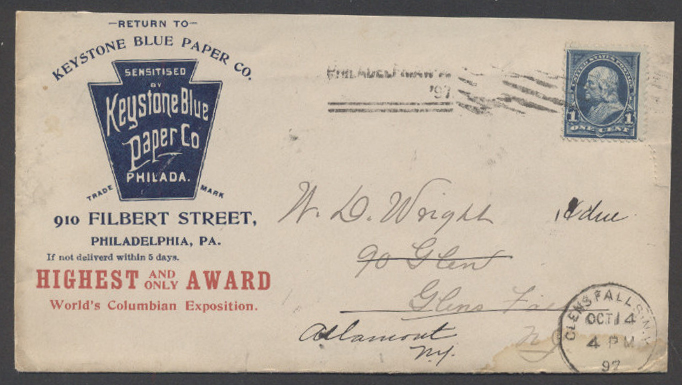 -RETURN TO-
KEYSTONE BLUE PAPER CO.
SENSITISED
BY
Keystone Blue
Paper Co
PHILADA.
TRADE MARK
910 FILBERT STREET,
PHILADELPHIA, PA.
If not deliverd within 5 days.
HIGHEST AND ONLY AWARD
World's Columbian Exposition.
PHILADELPHIA
'97
1 1
ONE CENT
W. D. Wright
1c due
90 Glen
Glens
Altamont
N.Y.
GLENS FALLS N.Y.
OCT 14
4 PM
97